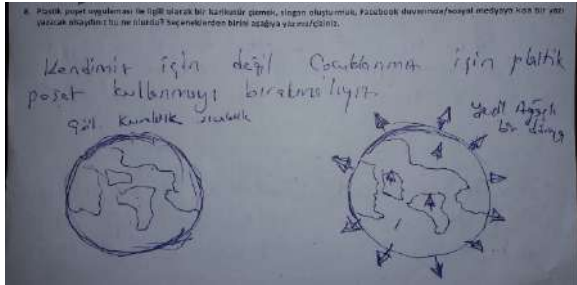 6. Plastik poşet uygulaması ile ilgili olarak bir karikatür çizmek, slogan oluşturmak, Facebook duvarınıza/sosyal medyaya kısa bir yazı
yazacak olsaydınız bu ne olurdu? Seçeneklerden birini aşağıya yazınız/çiziniz.
Kendimiz için değil Çocuklarımız için plastik
poşet kullanmayı bırakmalıyız.
Çöl. Kuraklık sıcaklık
Yeşil Ağaçlı
bir dünya